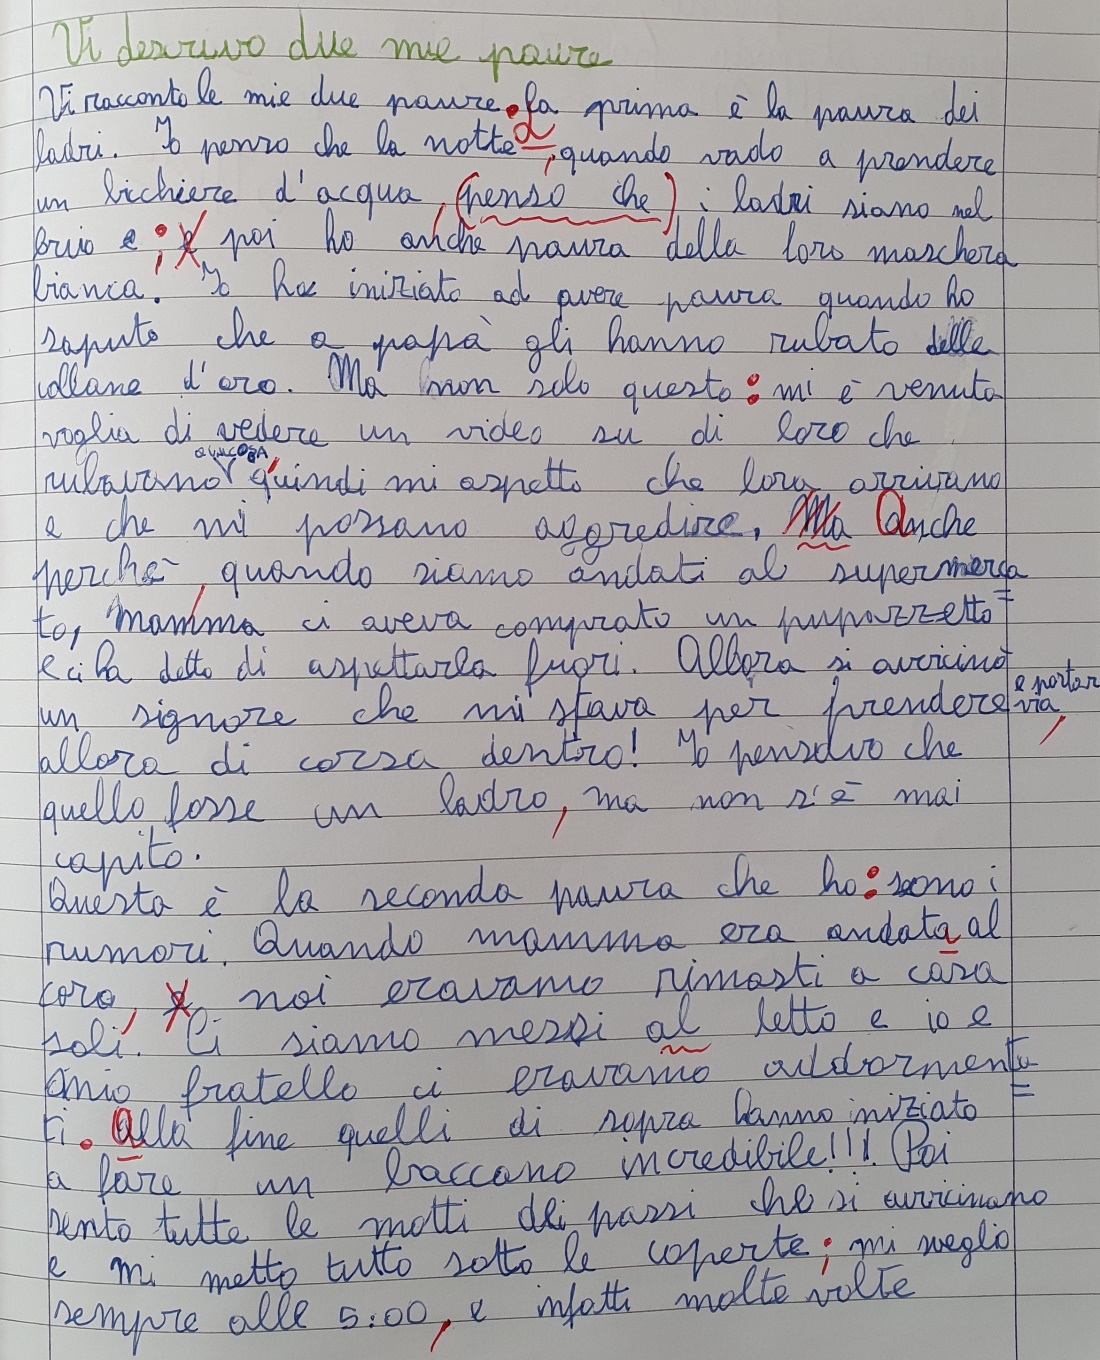 Vi descrivo due mie paure
Vi racconto le mie due paure. La prima è la paura dei
ladri. Io penso che la notte, quando vado a prendere
un bichiere d'acqua, (penso che) i ladri siano nel
buio e ; e poi ho anche paura della loro maschera
bianca. Io ho iniziato ad avere paura quando ho
saputo che a papà gli hanno rubato delle
collane d'oro. Ma non solo questo: mi è venuta
voglia di vedere un video su di loro che
QUALCOSA
rubavano quindi mi aspetto che loro arrivano
e che mi possano aggredire. Ma Anche
perchè, quando siamo andati al supermerca
to, mamma ci aveva comprato un pupazzetto
e ci ha detto di aspettarla fuori. Allora si avvicinò
un signore che mi stava per prendere e portar via,
allora di corsa dentro! Io pensavo che
quello fosse un ladro, ma non s'è mai
capito.
Questa è la seconda paura che ho: sono i
rumori. Quando mamma era andata al
coro, e noi eravamo rimasti a casa
soli. Ci siamo messi al letto e io e
mio fratello ci eravamo addormenta
ti. Alla fine quelli di sopra hanno iniziato
a fare un baccano incredibile!!! Poi
sento tutte le notti dei passi che si avvicinano
e mi metto tutto sotto le coperte; mi sveglio
sempre alle 5:00, e infatti molte volte